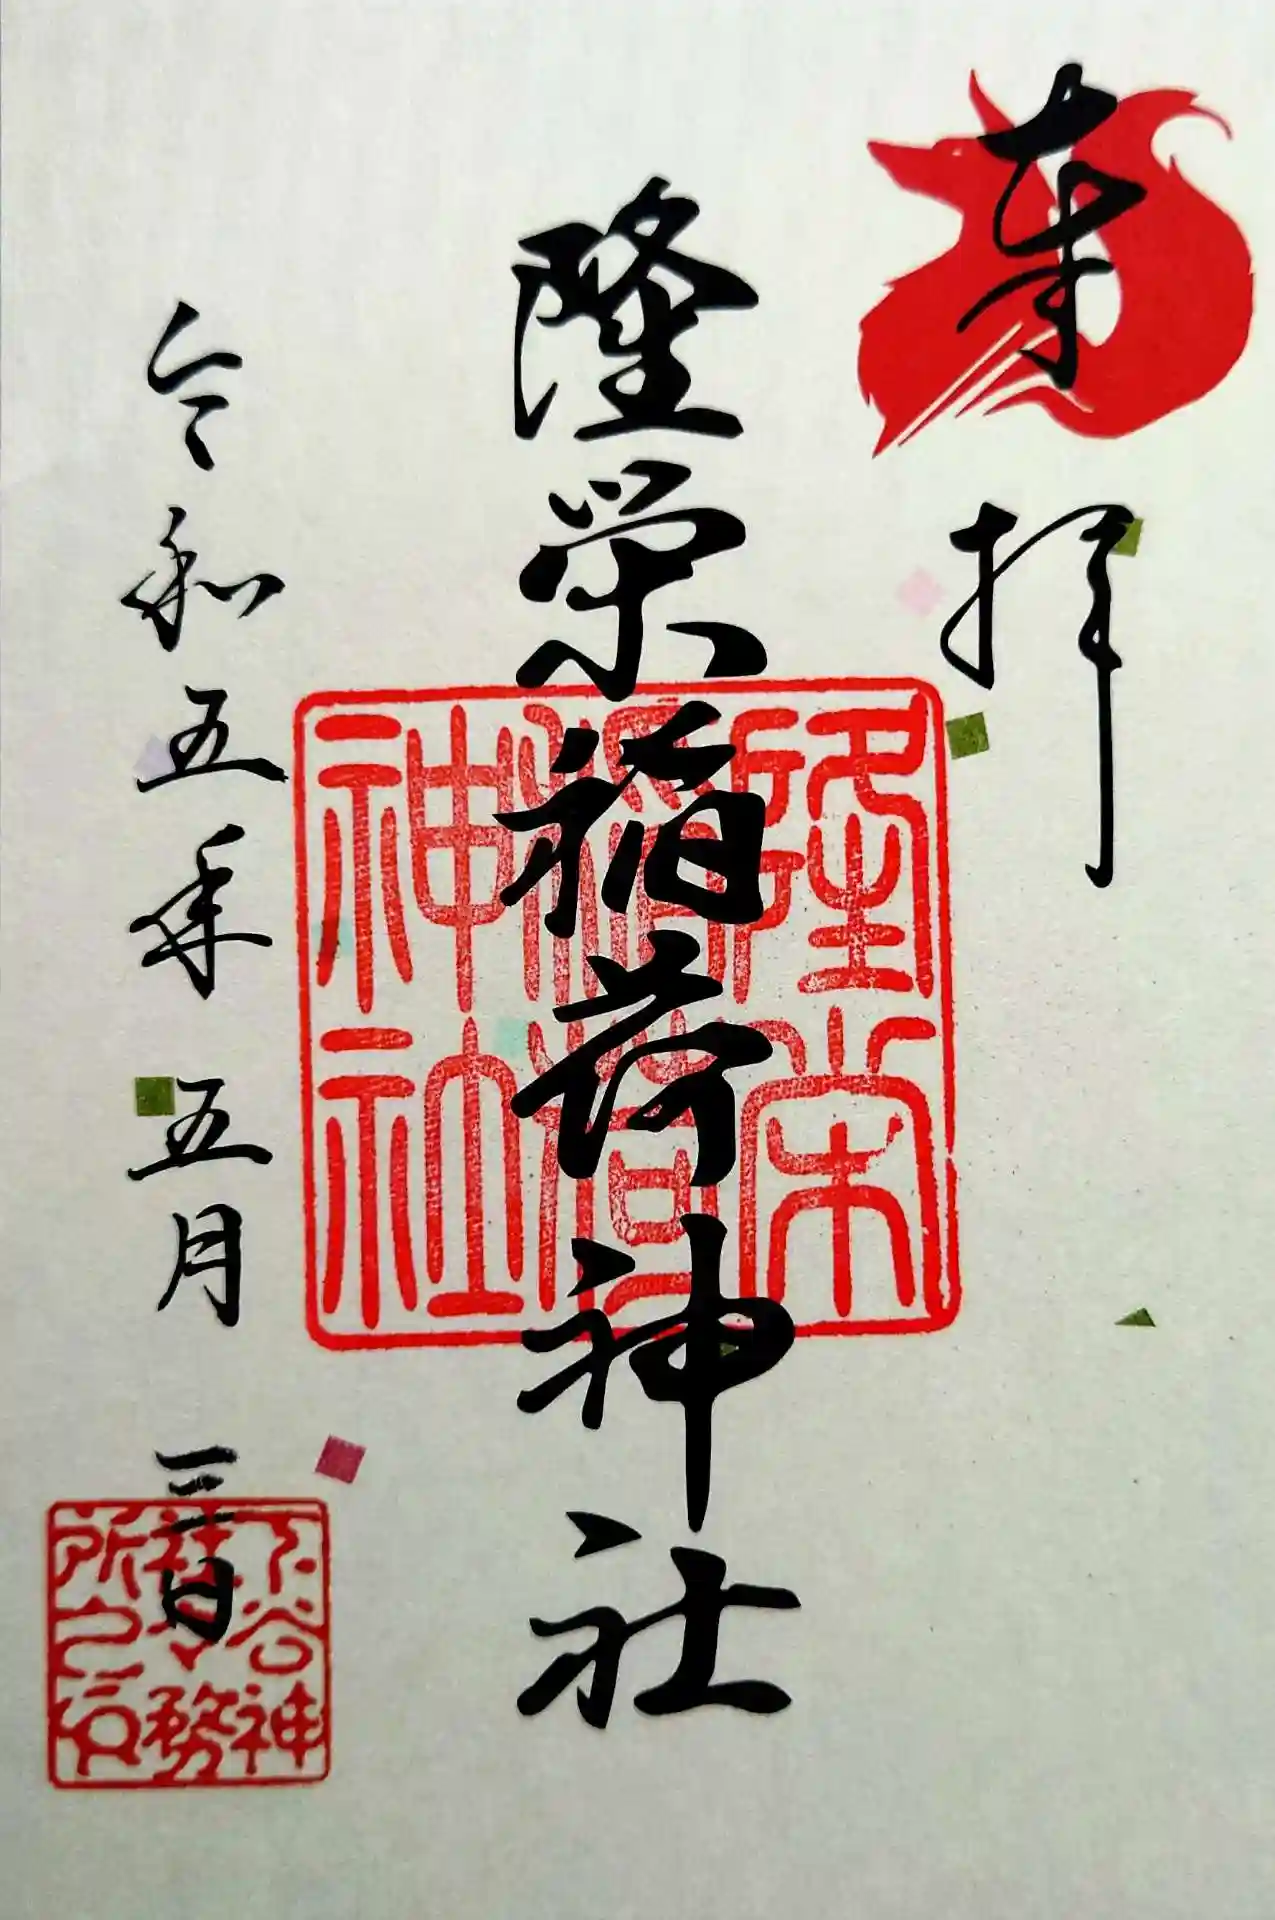 奉拝
隆栄稲荷神社
令和五年五月三日
隆栄
稲荷
神社
下谷神
社社務
所之印